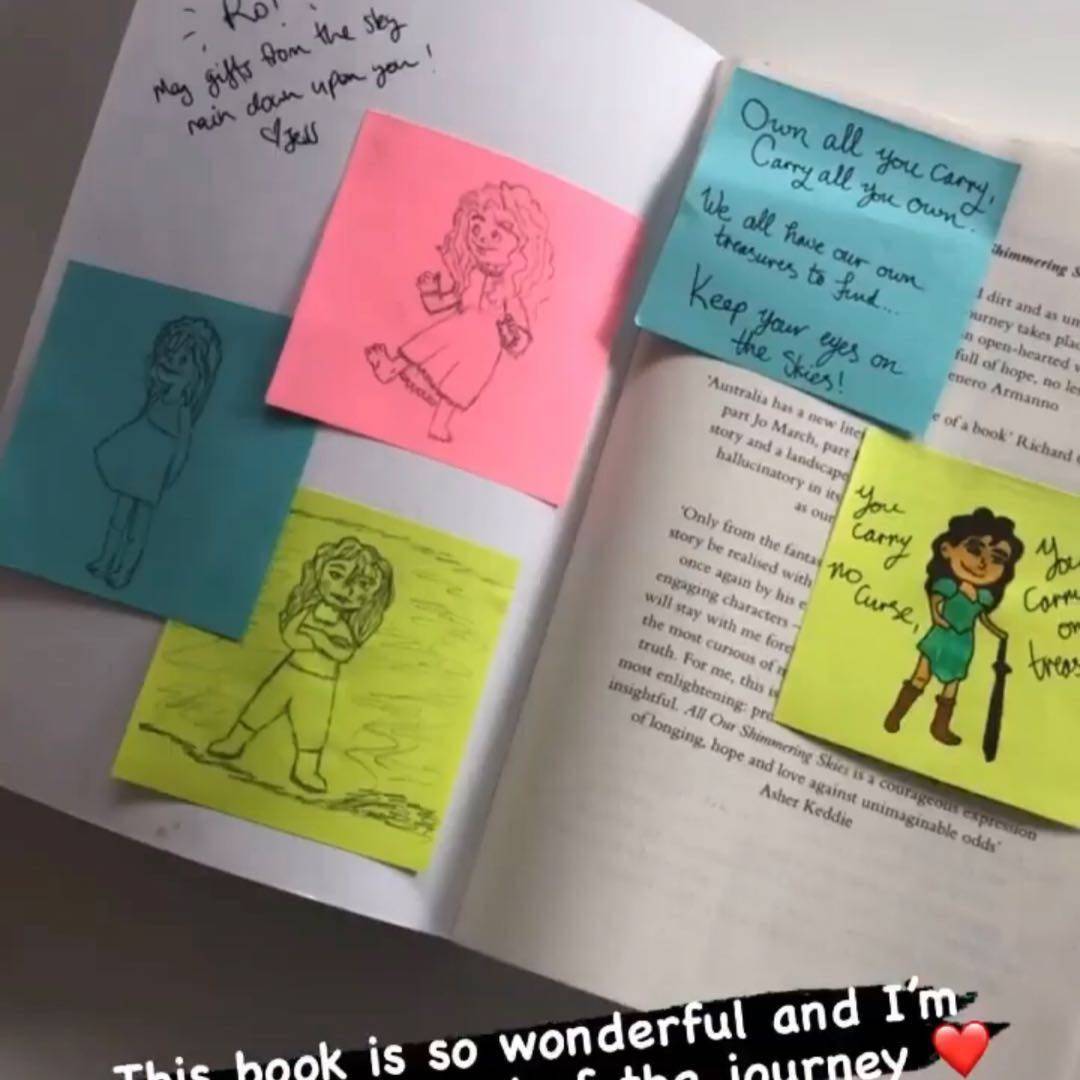 Ro!
May gifts from the sky
rain down upon you!
Jess
Own all you carry,
Carry all you own.
We all have our own
treasures to find...
Keep your eyes on
the skies!
himmering S
dirt and as un
urney takes plac
n open-hearted
full of hope, no les
enero Armanno
e of a book' Richard
'Australia has a new lite
part Jo March, part
story and a landscape
hallucinatory in its
as our
'Only from the fantas
story be realised with
once again by his e
engaging characters –
will stay with me fore
the most curious of
truth. For me, this is
most enlightening: pro
insightful. All Our Shimmering Skies is a courageous expression
of longing, hope and love against unimaginable odds'
Asher Keddie
You
carry
no
curse,
You
Carry
on
treas
This book is so wonderful and I'm
of the journey ❤️